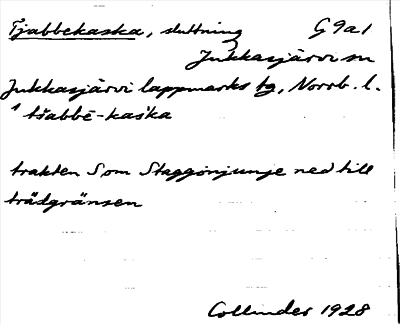 Tjabbekaska, sluttning G9a1
Jukkasjärvi sn
Jukkasjärvi lappmarks tg, Norrb. l.
‛ tšabbē-kaška
trakten S om Staggonjunje ned till
trädgränsen
Collinder 1928